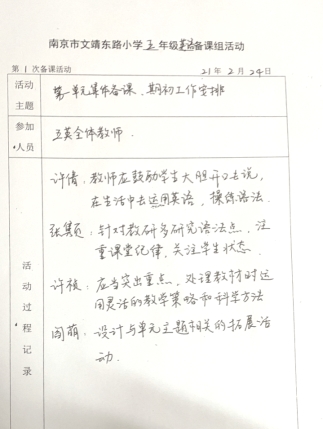 南京市文靖东路小学五年级英语备课组活动
第1次备课活动 21年2月24日
活动主题
第一单元集体备课、期初工作安排
参加人员
五英全体教师.
活动过程记录
许倩：教师应鼓励学生大胆开口去说，
在生活中去运用英语，操练语法.
张颖：针对教研多研究语法点，注
重课堂纪律，关注学生状态.
许核：应当突出重点，处理教材时运
用灵活的教学策略和科学方法
阎萌：设计与单元主题相关的拓展活
动.